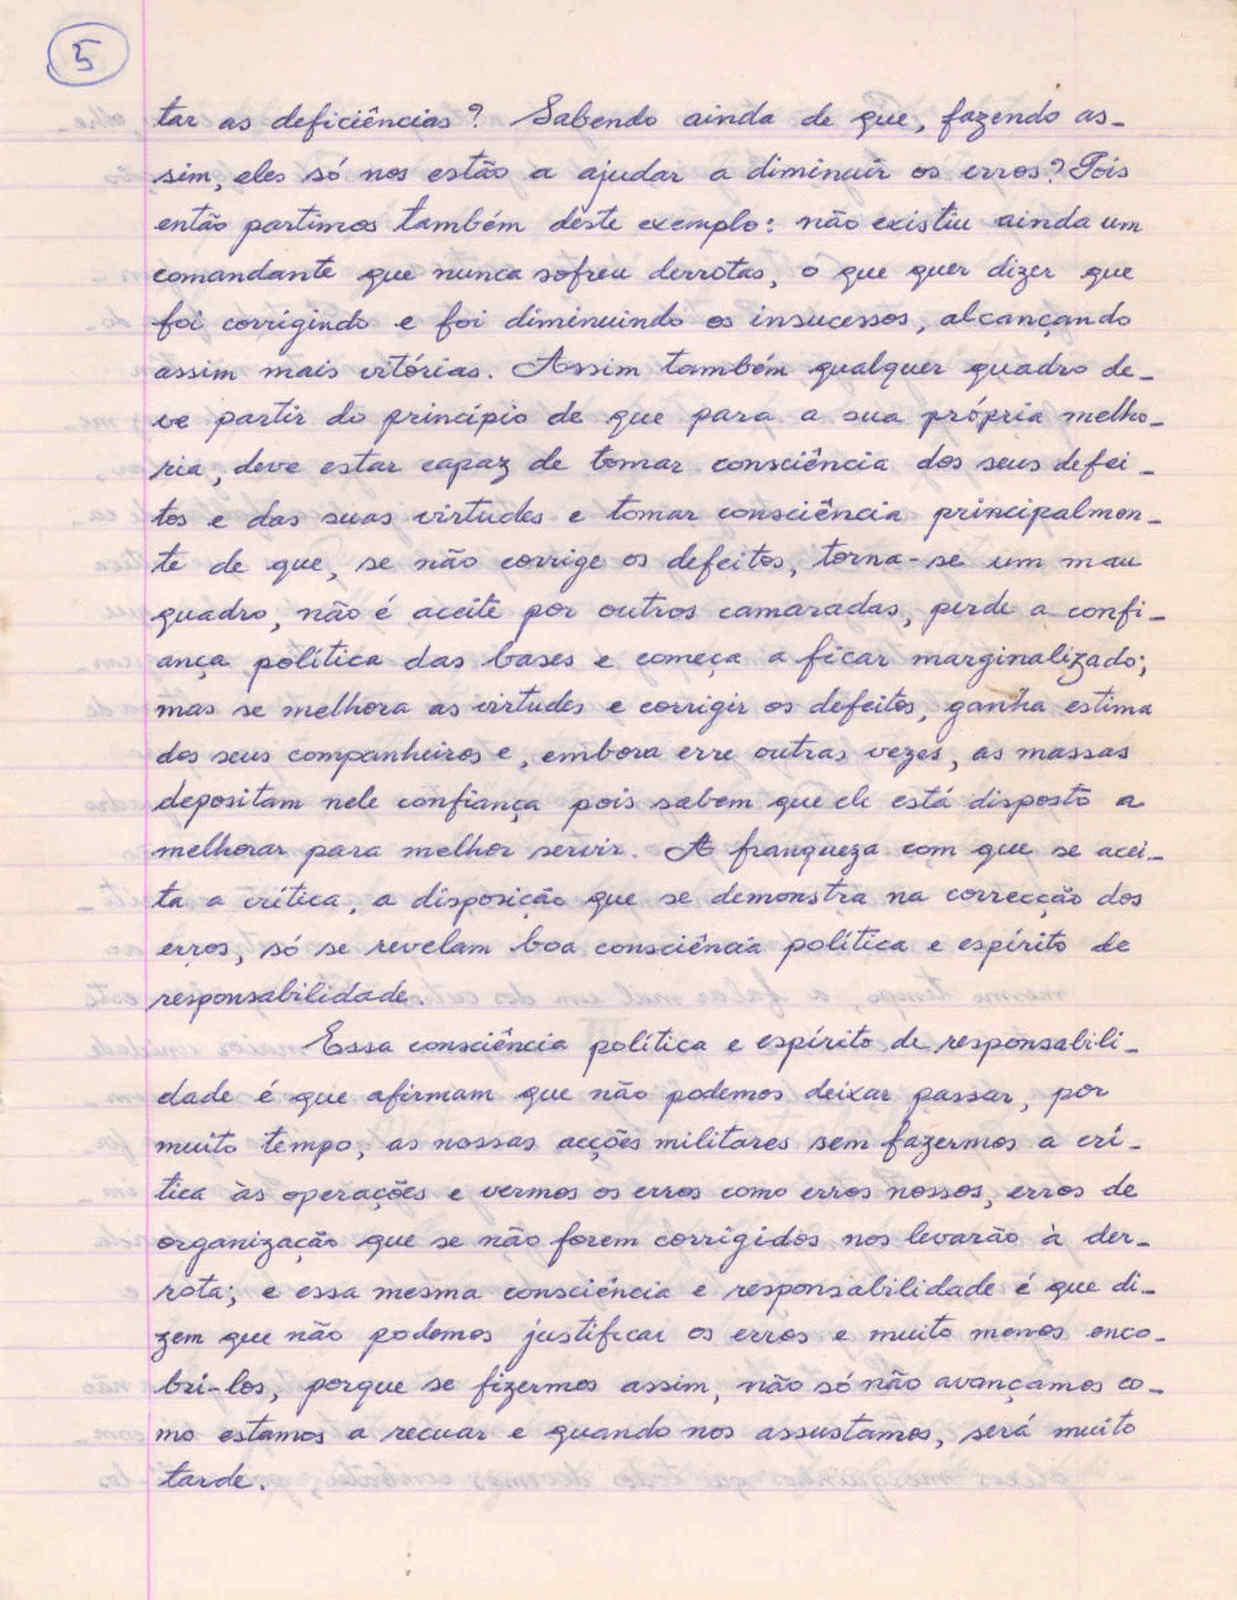 5
tar as deficiências? Sabendo ainda de que, fazendo as-
sim, eles só nos estão a ajudar a diminuir os erros? Pois
então partimos também deste exemplo: não existiu ainda um
comandante que nunca sofreu derrotas, o que quer dizer que
foi corrigindo e foi diminuindo os insucessos, alcançando
assim mais vitórias. Assim também qualquer quadro de-
ve partir do princípio de que para a sua própria melho-
ria, deve estar capaz de tomar consciência dos seus defei-
tos e das suas virtudes e tomar consciência principalmen-
te de que, se não corrige os defeitos, torna-se um mau
quadro, não é aceite por outros camaradas, perde a confi-
ança política das bases e começa a ficar marginalizado;
mas se melhora as virtudes e corrigir os defeitos, ganha estima
dos seus companheiros e, embora erre outras vezes, as massas
depositam nele confiança pois sabem que ele está disposto a
melhorar para melhor servir. A franqueza com que se acei-
ta a crítica, a disposição que se demonstra na correcção dos
erros, só se revelam boa consciência política e espírito de
responsabilidade.
Essa consciência política e espírito de responsabili-
dade é que afirmam que não podemos deixar passar, por
muito tempo, as nossas acções militares sem fazermos a crí-
tica às operações e vermos os erros como erros nossos, erros de
organização que se não forem corrigidos nos levarão à der-
rota; e essa mesma consciência e responsabilidade é que di-
zem que não podemos justificar os erros e muito menos enco-
bri-los, porque se fizermos assim, não só não avançamos co-
mo estamos a recuar e quando nos assustamos, será muito
tarde.